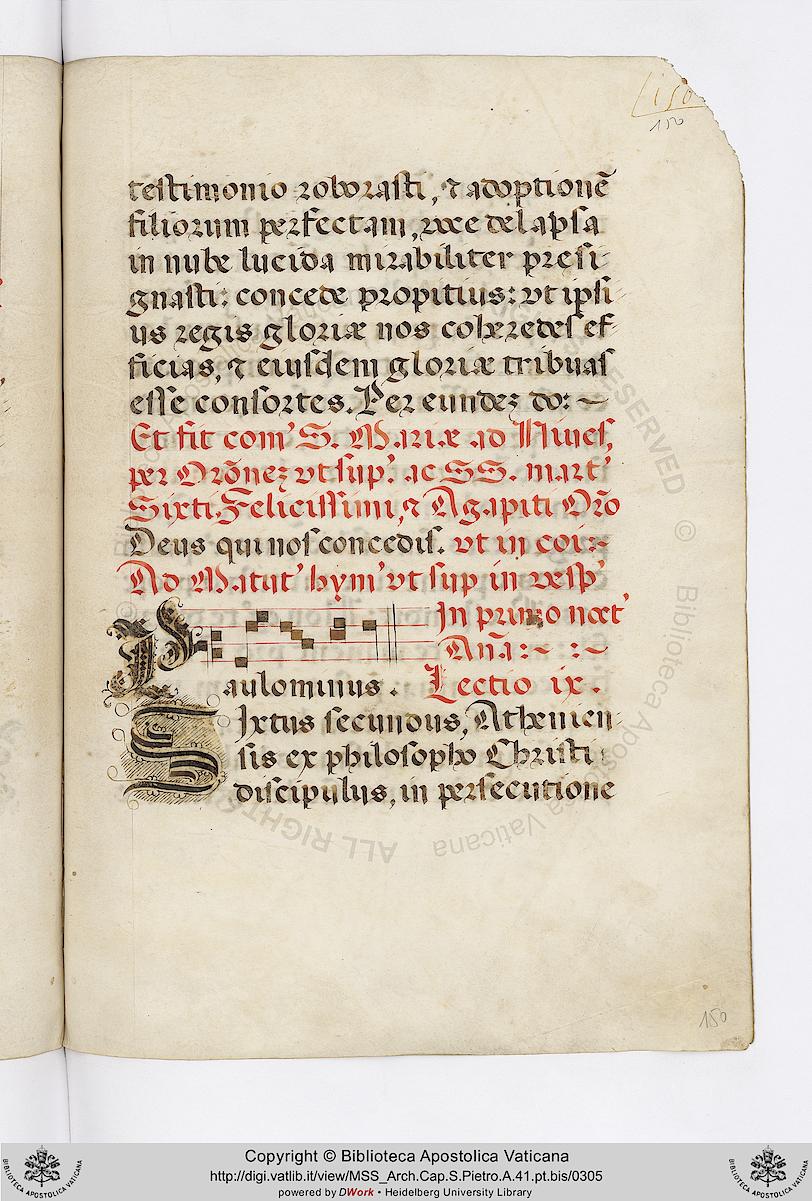 150
150
testimonio roborasti, ⁊ adoptionē
filiorum perfectam, voce delapsa
in nube lucida mirabiliter presi-
gnasti: concede propitius: vt ipsi-
us regis gloriæ nos coheredes ef-
ficias, ⁊ eiusdem gloriæ tribuas
esse consortes. Per eundeꝫ do: ~
Et fit com' S. Mariæ ad Niues,
per Orōneꝫ vt sup.' ac SS. mart'
Sixti, Felicissimi, ⁊ Agapiti Orō
Deus qui nos concedis. vt in
Ad Matut' hym' vt sup in vesp'
In primo noct'
Anã:~ :~
Paulominus. Lectio ix.
SIxtus secundus, Athenien-
sis ex philosopho Christi
discipulus, in persecutione
150
ALL RIGHTS RESERVED © Biblioteca Apostolica Vaticana
Copyright © Biblioteca Apostolica Vaticana
http://digi.vatlib.it/view/MSS_Arch.Cap.S.Pietro.A.41.pt.bis/0305
powered by DWork • Heidelberg University Library
BIBLIOTECA APOSTOLICA VATICANA
BIBLIOTECA APOSTOLICA VATICANA